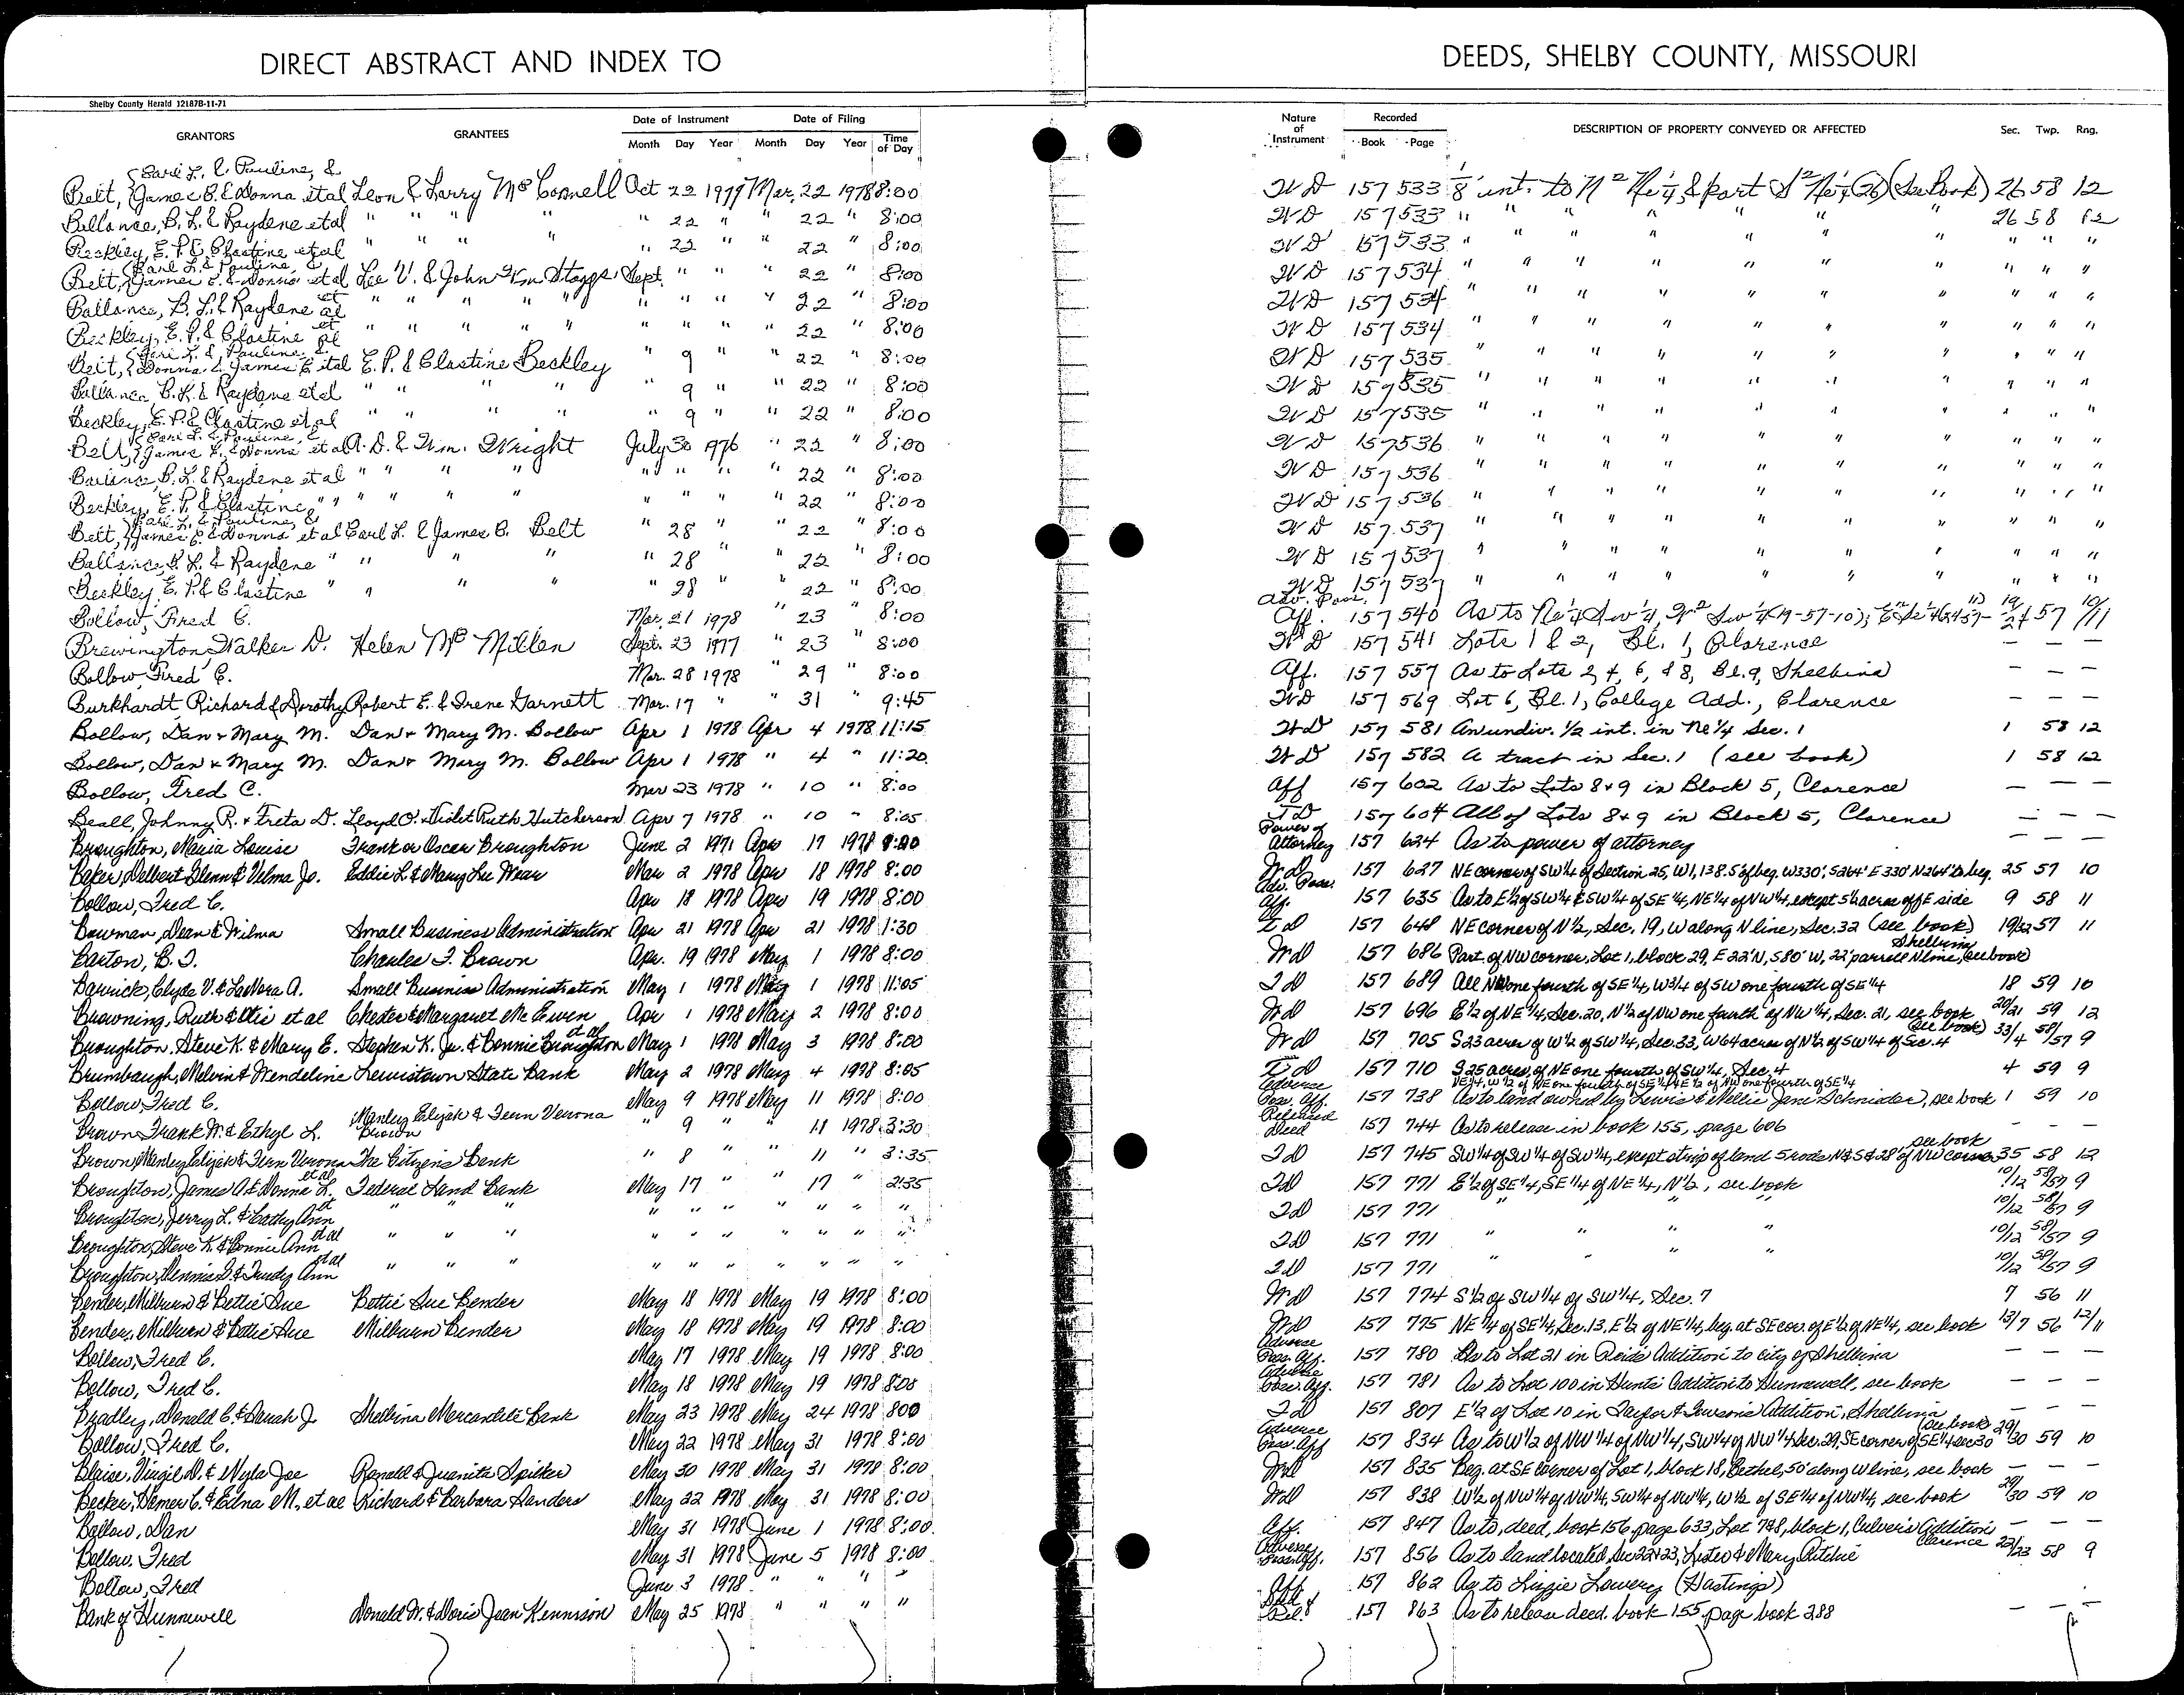 DIRECT ABSTRACT AND INDEX TO
DEEDS, SHELBY COUNTY, MISSOURI
Shelby County Herald 12187B-11-71
GRANTORS GRANTEES Date of Instrument Month Day Year Date of Filing Month Day Year Time of Day Nature of Instrument Recorded Book Page DESCRIPTION OF PROPERTY CONVEYED OR AFFECTED Sec. Twp. Rng.
Belt, {Earl L. & Pauline, & James B. & Donna et al Leon & Larry McConnell Oct 22 1977 Mar. 22 1978 8:00 WD 157 533 1/8 int. to N2 Ne 1/4, & part S2 Ne 1/4 (26) (See Book) 26 58 12
Ballance, B. L. & Raydene et al " " " " " 22 " " 22 " 8:00 WD 157 533 " " " " " " " 26 58 12
Beckley, E. P. & Clastine et al " " " " " 22 " " 22 " 8:00 WD 157 533 " " " " " " " " " "
Belt, {Earl L. & Pauline, & James E. & Donna et al Lee V. & John Wm. Staggs Sept. " " " 22 " 8:00 WD 157 534 " " " " " " " " " "
Ballance, B. L. & Raydene et al " " " " " " " " " 22 " 8:00 WD 157 534 " " " " " " " " " "
Beckley, E. P. & Clastine et al " " " " " " " " " 22 " 8:00 WD 157 534 " " " " " " " " " "
Belt, {Earl L. & Pauline, & Donna & James E et al E. P. & Clastine Beckley " 9 " " 22 " 8:00 WD 157 535 " " " " " " " " " "
Ballance, B. L. & Raydene et al " " " " " 9 " " 22 " 8:00 WD 157 535 " " " " " " " " " "
Beckley, E. P. & Clastine et al " " " " " 9 " " 22 " 8:00 WD 157 535 " " " " " " " " " "
Belt, {Earl L. & Pauline, & James E. & Donna et al A. D. & Wm. Wright July 30 1976 " 22 " 8:00 WD 157 536 " " " " " " " " " "
Ballance, B. L. & Raydene et al " " " " " " " " 22 " 8:00 WD 157 536 " " " " " " " " " "
Beckley, E. P. & Clastine " " " " " " " " " 22 " 8:00 WD 157 536 " " " " " " " " " "
Belt, {Earl L. & Pauline, & James E. & Donna et al Earl L. & James B. Belt " 28 " " 22 " 8:00 WD 157 537 " " " " " " " " " "
Ballance, B. L. & Raydene " " " " " 28 " " 22 " 8:00 WD 157 537 " " " " " " " " " "
Beckley, E. P. & Clastine " " " " " 28 " " 22 " 8:00 WD 157 537 " " " " " " " " " "
Bollow, Fred C. Mar. 21 1978 " 23 " 8:00 Adv. Poss. Aff. 157 540 As to Ne 1/4 Sw 1/4, W2 Sw 1/4 (19-57-10); 19/24 57 10/11
Brewington, Walker D. Helen McMillen Sept. 23 1977 " 23 " 8:00 WD 157 541 Lots 1 & 2, Bl. 1, Clarence — — —
Bollow, Fred C. Mar. 28 1978 " 29 " 8:00 Aff. 157 557 As to Lots 2, 4, 6, & 8, Bl. 9, Shelbina — — —
Burkhardt, Richard & Dorothy Robert E. & Irene Garnett Mar. 17 " " 31 " 9:45 WD 157 569 Lot 6, Bl. 1, College Add., Clarence — — —
Bollow, Dan & Mary M. Dan & Mary M. Bollow Apr 1 1978 Apr 4 1978 11:15 WD 157 581 An undiv. 1/2 int. in Ne 1/4 Sec. 1 1 58 12
Bollow, Dan & Mary M. Dan & Mary M. Bollow Apr 1 1978 " 4 " 11:20 WD 157 582 A tract in Sec. 1 (see book) 1 58 12
Bollow, Fred C. Mar 23 1978 " 10 " 8:00 Aff 157 602 As to Lots 8+9 in Block 5, Clarence — — —
Beall, Johnny R. + Freta D. Lloyd O. + Violet Ruth Hutcherson Apr 7 1978 " 10 " 8:05 TD 157 604 All of Lots 8+9 in Block 5, Clarence — — —
Broughton, Maria Louise Frank or Oscar Broughton June 2 1971 Apr 17 1978 8:00 Power of Attorney 157 624 As to power of attorney — — —
Baker, Delbert Glenn & Velma Jo. Eddie L. & Mary Lee Wear Mar 2 1978 Apr 18 1978 8:00 WD 157 627 NE corner of SW 1/4 of Section 25, W 1,138.5' of beg. W330' S264' E 330' N264' to beg. 25 57 10
Bollow, Fred C. Apr 18 1978 Apr 19 1978 8:00 Adv. Poss. Aff. 157 635 As to E 1/2 of SW 1/4 & SW 1/4 of SE 1/4, NE 1/4 of NW 1/4, except 5 1/2 acres off E side 9 58 11
Bowman, Dean & Wilma Small Business Administration Apr 21 1978 Apr 21 1978 1:30 TD 157 648 NE corner of N 1/2, Sec. 19, W along N line, Sec. 32 (see book) 19/32 57 11
Barton, B. J. Charles F. Brown Apr. 19 1978 May 1 1978 8:00 WD 157 686 Part of NW corner, Lot 1, block 29, E 22' N, S80' W, 22' parrell N line, Shelbina (see book)
Barrick, Clyde V. & LaNora A. Small Business Administration May 1 1978 May 1 1978 11:05 TD 157 689 All NW one fourth of SE 1/4, W 3/4 of SW one fourth of SE 1/4 18 59 10
Browning, Ruth & Otis et al Chester & Margaret McEwen Apr 1 1978 May 2 1978 8:00 WD 157 696 E 1/2 of NE 1/4, Sec. 20, N 1/2 of NW one fourth of NW 1/4, Sec. 21, see book 20/21 59 12
Broughton, Steve K. & Mary E. Stephen K. Jr. & Bonnie Broughton et al May 1 1978 May 3 1978 8:00 WD 157 705 S23 acres of W 1/2 of SW 1/4, Sec. 33, W64 acres of N 1/2 of SW 1/4 of Sec. 4 (see book) 33/4 58/57 9
Brumbaugh, Melvin & Wendeline Lewistown State Bank May 2 1978 May 4 1978 8:05 TD 157 710 S25 acres of NE one fourth of SW 1/4, Sec. 4 4 59 9
Bollow, Fred C. May 9 1978 May 11 1978 8:00 Adverse Poss. Aff. 157 738 NE 1/4, W 1/2 of NE one fourth of SE 1/4 & E 1/2 of NW one fourth of SE 1/4 As to land owned by Lewis & Nellie Jane Schnieder, see book 1 59 10
Brown, Frank W. & Ethyl L. Manley Elijah & Fern Verona Brown " 9 " " 11 1978 3:30 Released Deed 157 744 As to release in book 155, page 606 — — —
Brown, Manley Elijah & Fern Verona The Citizens Bank " 8 " " 11 " 3:35 TD 157 745 SW 1/4 of SW 1/4 of SW 1/4, except strip of land 5 rods N&S & 28' of NW corner, see book 35 58 12
Broughton, James A. & Donna L. et al Federal Land Bank May 17 " " 17 " 2:35 TD 157 771 E 1/2 of SE 1/4, SE 1/4 of NE 1/4, N 1/2, see book 10/12 58/57 9
Broughton, Jerry L. & Cathy Ann " " " " " " " " " " TD 157 771 " " " 10/12 58/57 9
Broughton, Steve K. & Bonnie Ann et al " " " " " " " " " " TD 157 771 " " " 10/12 58/57 9
Broughton, Dennis G. & Trudy Ann et al " " " " " " " " " " TD 157 771 " " " 10/12 58/57 9
Bender, Milburn & Bettie Sue Bettie Sue Bender May 18 1978 May 19 1978 8:00 WD 157 774 S 1/2 of SW 1/4 of SW 1/4, Sec. 7 7 56 11
Bender, Milburn & Bettie Sue Milburn Bender May 18 1978 May 19 1978 8:00 WD 157 775 NE 1/4 of SE 1/4, Sec. 13, E 1/2 of NE 1/4, beg. at SE cor. of E 1/2 of NE 1/4, see book 13/7 56 12/11
Bollow, Fred C. May 17 1978 May 19 1978 8:00 Adverse Poss. Aff. 157 780 As to Lot 21 in Reids Addition to city of Shelbina — — —
Bollow, Fred C. May 18 1978 May 19 1978 8:00 Adverse Poss. Aff. 157 781 As to Lot 100 in Hunts Addition to Hunnewell, see book — — —
Bradley, Donald C. & Sarah J. Shelbina Mercantile Bank May 23 1978 May 24 1978 8:00 TD 157 807 E 1/2 of Lot 10 in Taylor & Towson's Addition, Shelbina — — —
Bollow, Fred C. May 22 1978 May 31 1978 8:00 Adverse Poss. Aff 157 834 As to W 1/2 of NW 1/4 of NW 1/4, SW 1/4 of NW 1/4 Sec. 29, SE corner of SE 1/4 Sec 30 (see book) 29/30 59 10
Blaise, Virgil D. & Nyla Joe Ronald & Juanita Spilker May 30 1978 May 31 1978 8:00 WD 157 835 Beg. at SE corner of Lot 1, block 18, Bethel, 50' along W line, see book — — —
Becker, Homer C. & Edna M., et al Richard & Barbara Sanders May 22 1978 May 31 1978 8:00 WD 157 838 W 1/2 of NW 1/4 of NW 1/4, SW 1/4 of NW 1/4, W 1/2 of SE 1/4 of NW 1/4, see book 29/30 59 10
Bollow, Dan May 31 1978 June 1 1978 8:00 Aff. 157 847 As to, deed, book 156, page 633, Lot 7&8, block 1, Culver's Addition Clarence — — —
Bollow, Fred May 31 1978 June 5 1978 8:00 Adverse Poss. Aff. 157 856 As to land located, Sec 22&23, Lester & Mary Ritchie 22/23 58 9
Bollow, Fred June 3 1978 " " " " Aff 157 862 As to Lizzie Lowery (Hastings)
Bank of Hunnewell Donald W. & Doris Jean Kennison May 25 1978 " " " " Rel. 157 863 As to release deed, book 155, page book 288 — — —